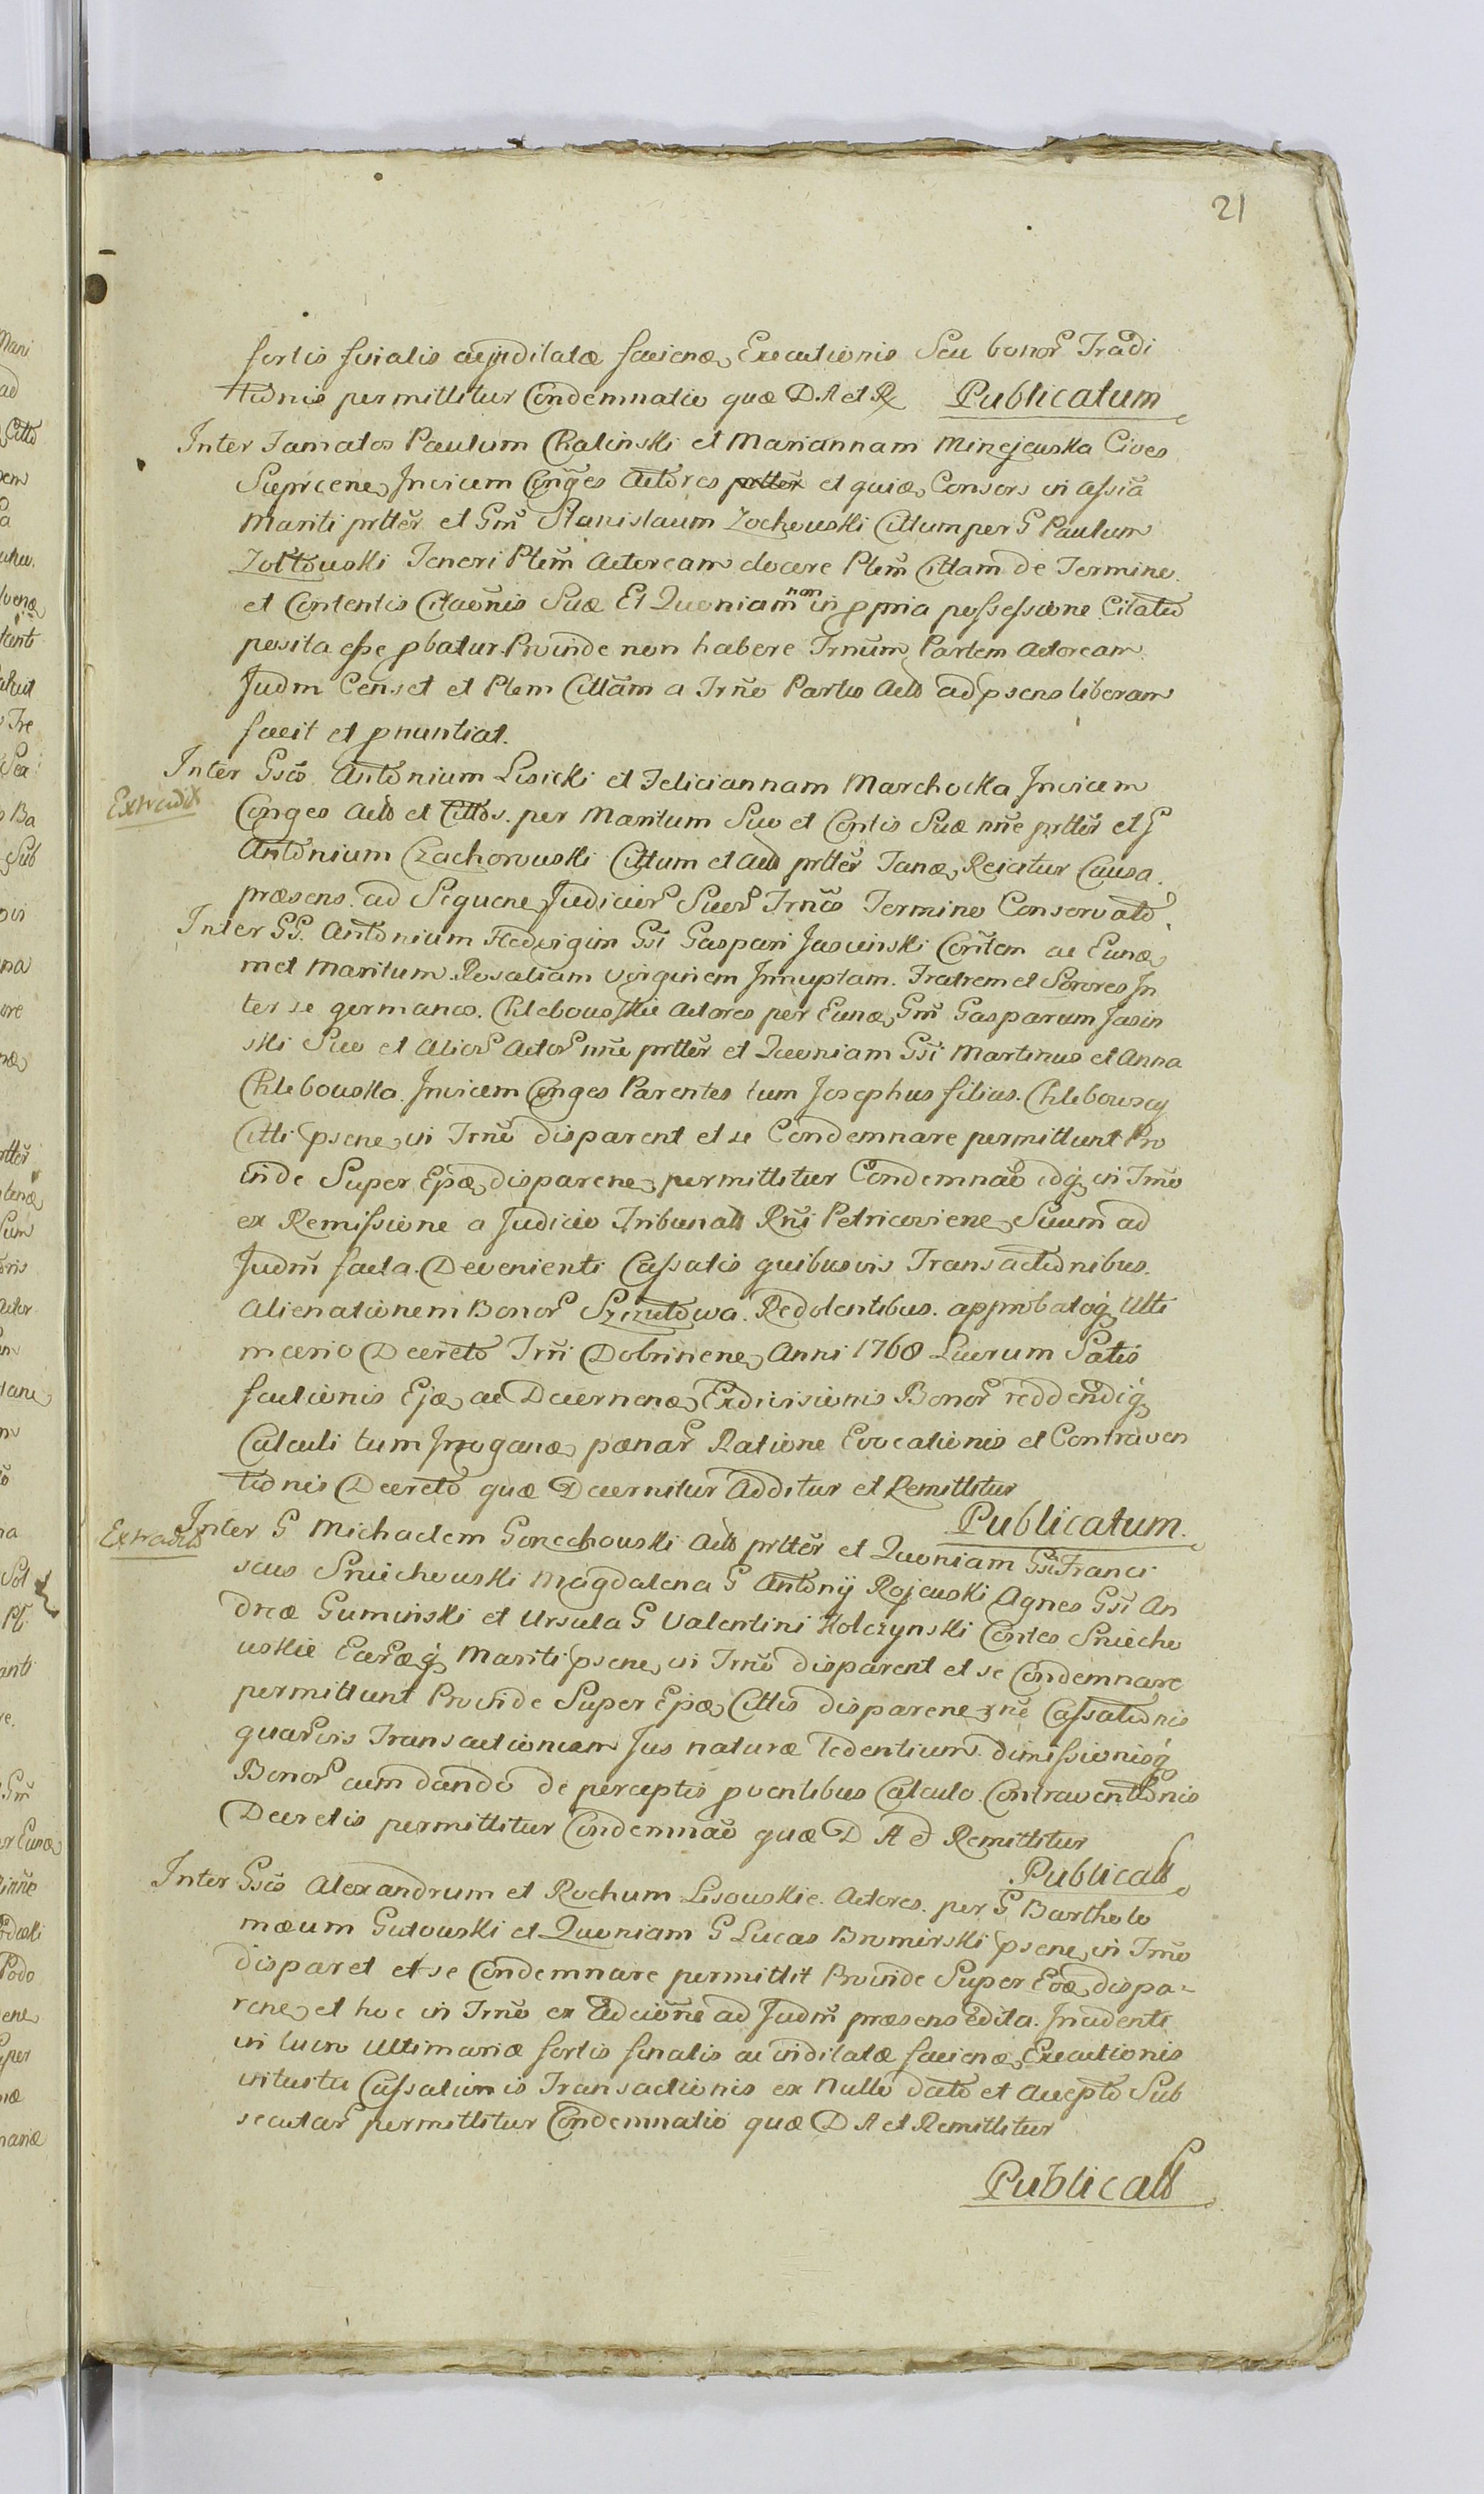 21
sortis finalis ac inditatæ facienæ Executionis Seu bonor Tradi
tionis permittitur Condemnatio quæ D. A et R Publicatum
Inter Famatos Paulum Chalinski et Mariannam Minejewska Cives
Sieprcene Invicem Conges Actores prtter et quiæ Consors in assia
Mariti prtter et Gm Stanislaum Zochowski Cittum per G Paulum
Zołtowski Teneri Ptem Actoream docere Ptem Cittam de Termine
et Contentis Citaonis Suæ Et Quoniam non in ppria possessione Citatio
posita esse pbatur Proinde non habere Trnum Partem Actoream
Judm Censet et Ptem Cittam a Trno Partis Acto ad psens liberam
facit et pnuntiat.
Extradit
Inter Gsos Antonium Lisicki et Feliciannam Marchocka Invicem
Conges Acto et Cittos. per Maritum Suo et Contis Suæ nne prtter et G
Antonium Czachorowski Cittum et Acto prtter Janæ Reicitur Causa
præsens. ad Sequene Judicior Suor Trnos Termino Conservato
Inter GG. Antonium Hedvigim Gsi Gaspari Jasinski Contem ac Eunæ
met Maritum. Rosaliam Virginem Innuptam. Fratrem et Sorores In
ter se germanos. Chlebowskie Actores per Eunæ Gm Gasparum Jasin
ski Suo et Alior Actor nne prtter et Quoniam Gsi Martinus et Anna
Chlebowska. Invicem Conges Parentes tum Josephus filius. Chlebowscy
Citti psene in Trno disparent et se Condemnare permittunt Pro
inde Super Epæ disparene permittitur Condemnao idq in Trno
ex Remissione a Judicio Tribunals Rni Petricoviene Suum ad
Judm facta. Devenienti Cassatis quibusvis Transactionibus.
Alienationem Bonor Szczutowa. Redolentibus. approbatoq Ulti
mario Decreto Trni Dobrinene Anni 1768 Lucrum Satis
factionis Ejæ ac Decernenæ Exdivisionis Bonor reddendiq
Calculi tum Irroganæ pænar Ratione Evocationis et Contraven
tionis Decreto quæ Decernitur Additur et Remittitur
Publicatum.
Extradit
Inter G Michaelem Gonechowski Acto prtter et Quoniam Gsi Franci
scus Sniechowski Magdalena G Antonij Rojewski Agnes Gsi An
dreæ Guminski et Ursula G Valentini Holczynski Contes Sniecho
wskie Earæq Mariti psene in Trno disparent et se Condemnare
permittunt Proinde Super Epæ Cittis disparene rne Cassationis
quarvis Transactionum Jus naturæ ledentium. dimissionisq
Bonor cum dando de perceptis pventibus Calculo Contraventionis
Decretis permittitur Condemnao quæ D A et Remittitur
Publicatt
Inter Gsos Alexandrum et Rochum Lisowskie. Actores. per G Bartholo
mæum Gutowski et Quoniam G Lucas Bromirski psene in Trno
disparet et se Condemnare permittit Proinde Super Eoæ dispa-
rene et hoc in Trno ex Edcione ad Judm præsens Edita. Incidenti
in lucro Ultimariæ sortis finalis ac inditatæ facienæ Executionis
intuitu Cassationis Transactionis ex Nullo dato et Accepto Sub
secutar permittitur Condemnatio quæ D A et Remittitur
Publicatt